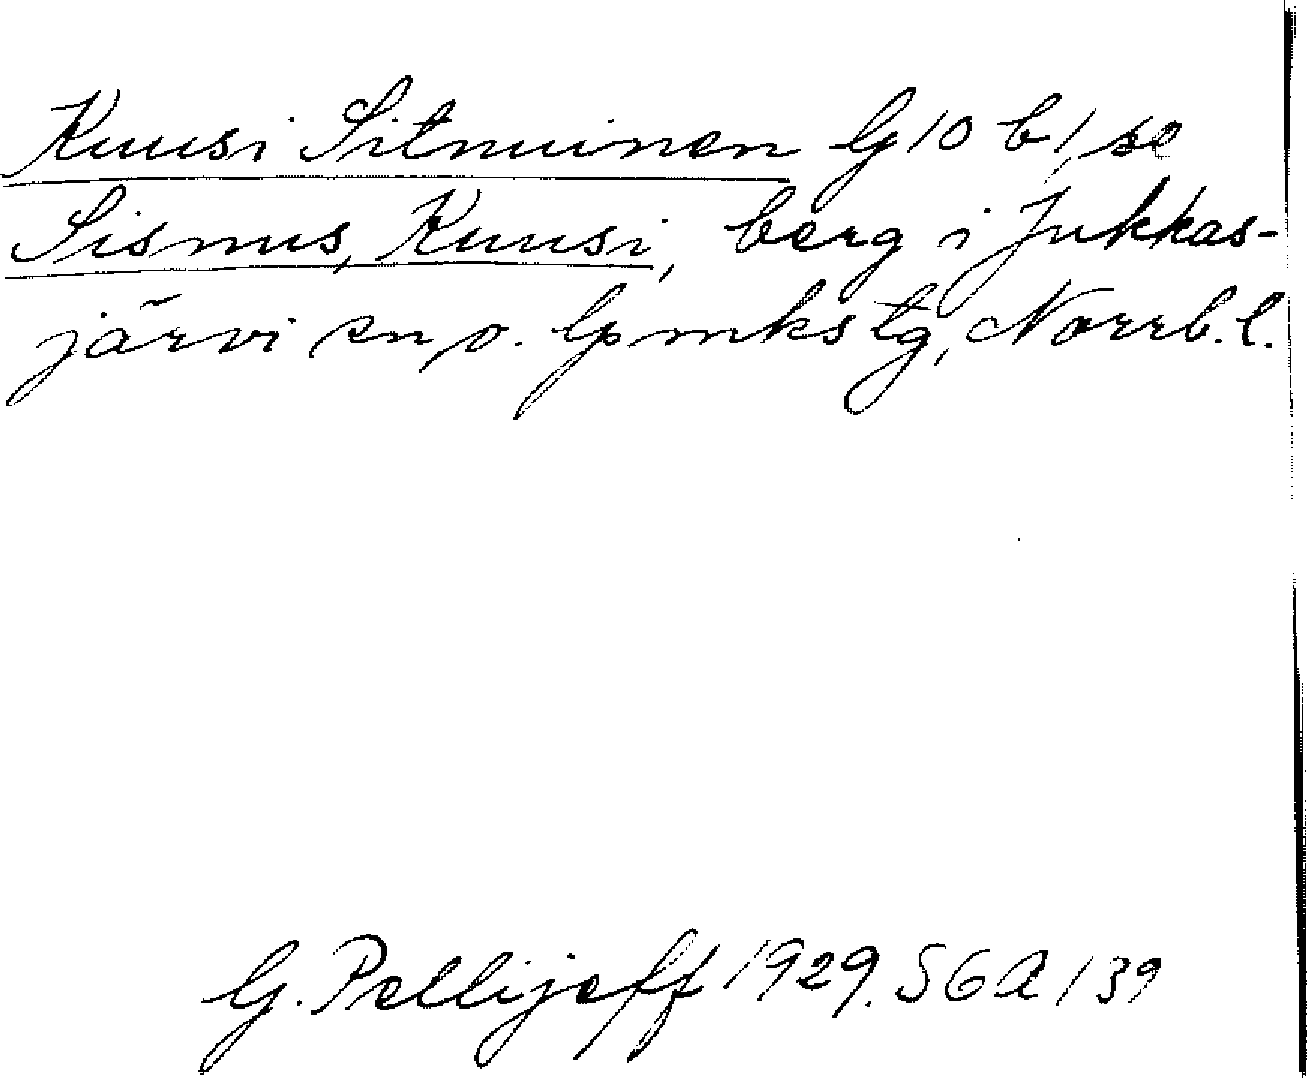 Kuusi Sitnuinen G10 b1, se
Sisnus, Kuusi, berg i Jukkas-
järvi sn o. lpmkstg, Norrb. l.
G. Pellijeff 1929. SGA 139